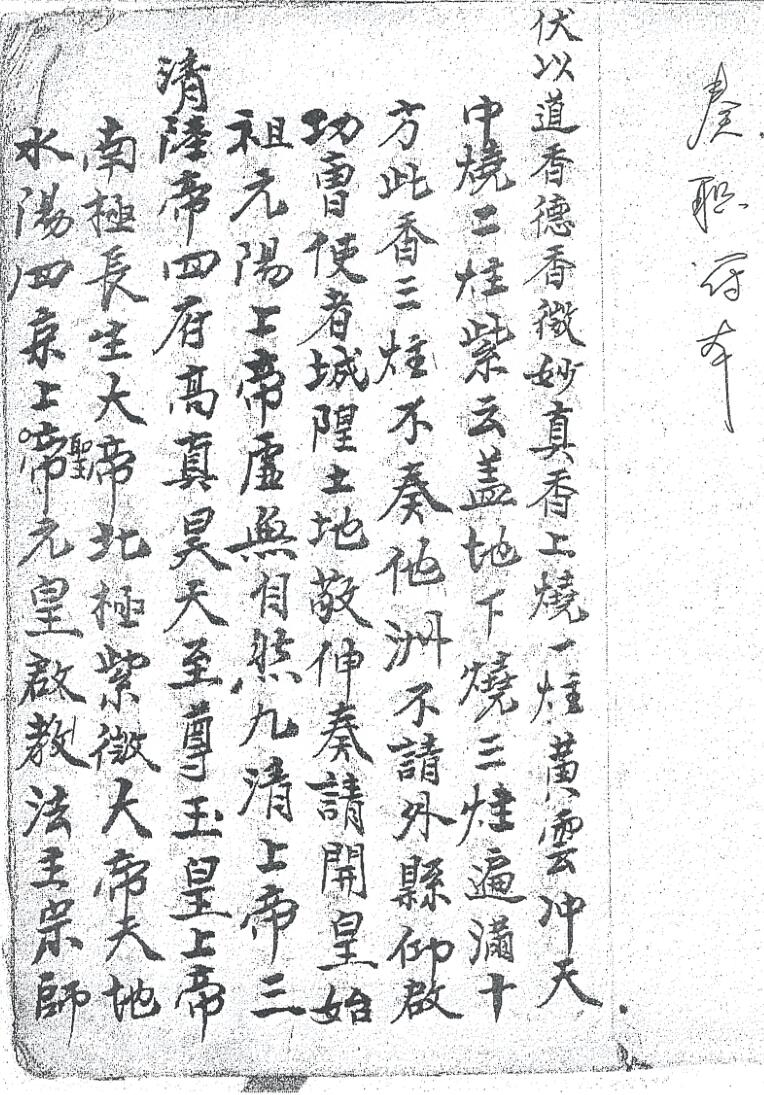 奏职符本
伏以道香德香微妙真香上燒一炷黄雲冲天
中燒二炷紫云盖地下燒三炷遍滿十
方此香三炷不奏他洲不請外縣仰啟
功曹使者城隍土地敬伸奏請開皇始
祖元陽上帝虚無自然九清上帝三
清陸帝四府高真昊天至尊玉皇上帝
南極長生大帝北極紫微大帝天地
水陽四京上帝聖元皇啟教法王宗師